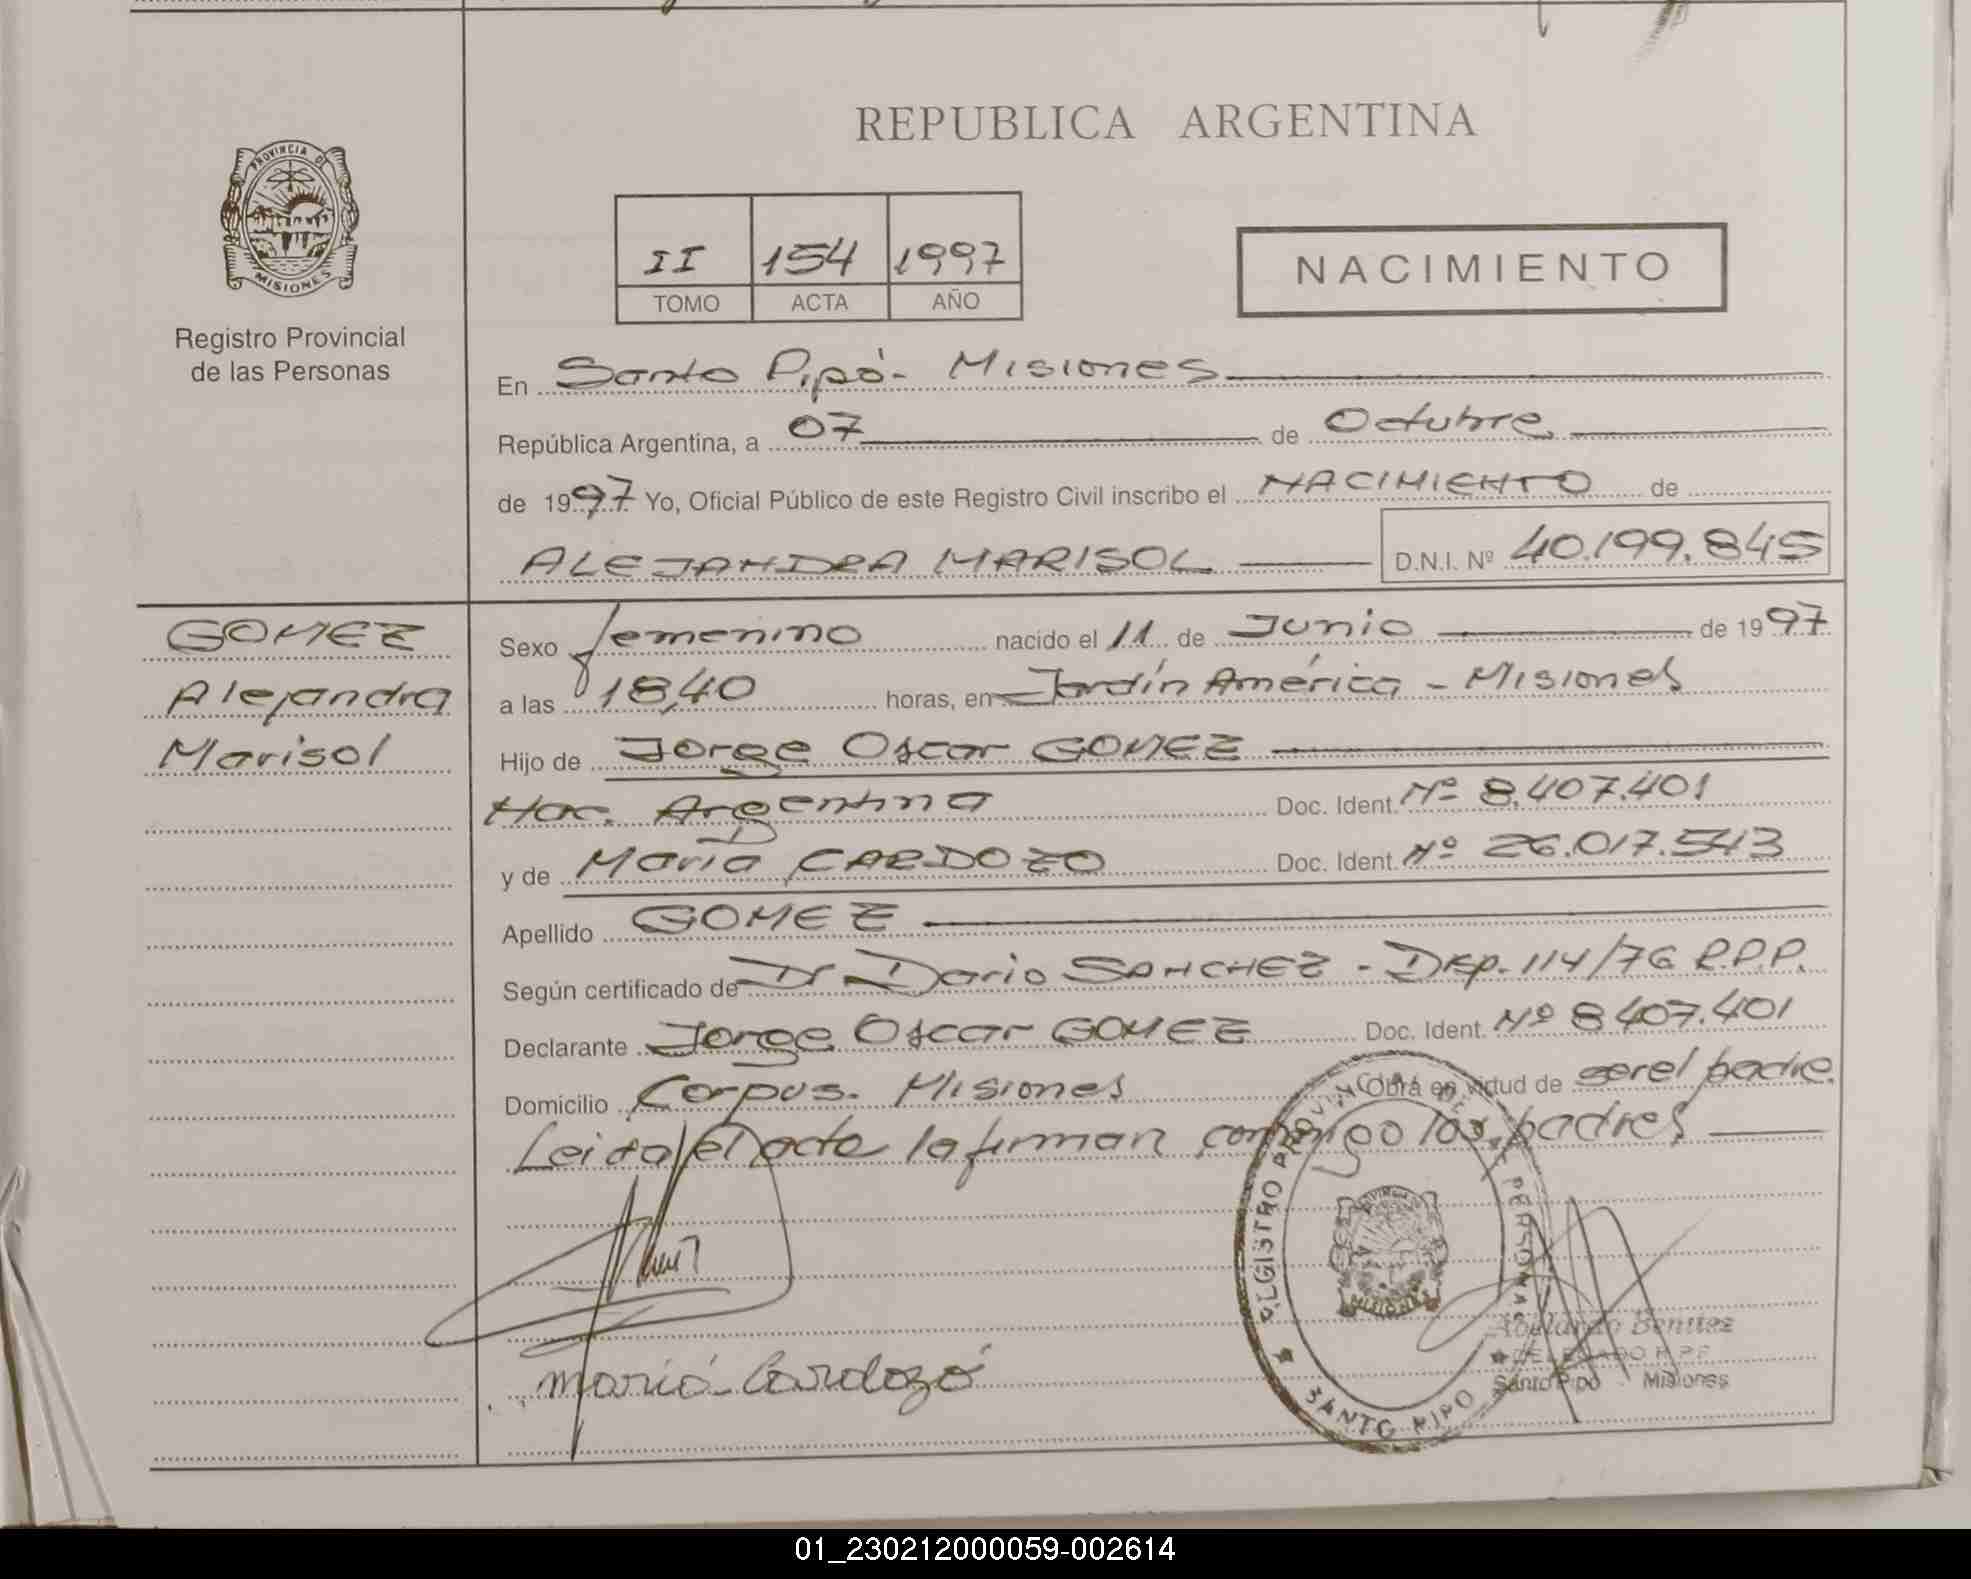 REPUBLICA ARGENTINA
PROVINCIA DE
MISIONES
Registro Provincial
de las Personas
II 154 1997
TOMO ACTA AÑO
NACIMIENTO
En Santo Pipó - Misiones
República Argentina, a 07 de Octubre
de 1997 Yo, Oficial Público de este Registro Civil inscribo el NACIMIENTO de
ALEJANDRA MARISOL D.N.I. Nº 40.199.845
GOMEZ
Alejandra
Marisol
Sexo femenino nacido el 11 de Junio de 1997
a las 18,40 horas, en Jardín América - Misiones
Hijo de Jorge Oscar GOMEZ
Nac. Argentina Doc. Ident. Nº 8.407.401
y de María CARDOZO Doc. Ident. Nº 26.017.543
Apellido GOMEZ
Según certificado de Dr Dario SANCHEZ - Dxp. 114/76 R.P.P.
Declarante Jorge Oscar GOMEZ Doc. Ident. Nº 8407.401
Domicilio Corpus. Misiones Obra en virtud de ser el padre
Leida el acta la firman conmigo los padres
REGISTRO PROVINCIAL DE LAS PERSONAS
MISIONES
SANTO PIPO
maria Cardozo
Abelardo Benitez
DELEGADO R.P.P.
Santo Pipó Misiones
01_230212000059-002614